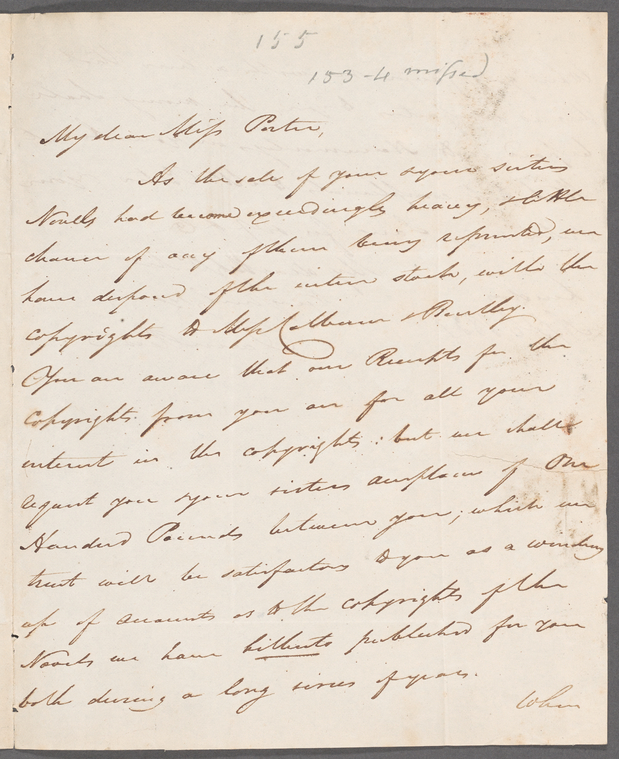 155
153-4 missed
My dear Miss Porter,
As the sale of your & your sisters
Novels had become exceedingly heavy, & little
chance of any of them being reprinted, we
have disposed of the entire stock, with the
copyrights to Mess Colburn & Bentley
You are aware that our Receipts for the
copyrights from you are for all your
interest in the copyrights: but we shall
request you & your sisters acceptance of One
Hundred Pounds between you; which we
trust will be satisfactory to you as a winding
up of accounts as to the copyrights of the
Novels we have hitherto published for you
both during a long series of years.
When